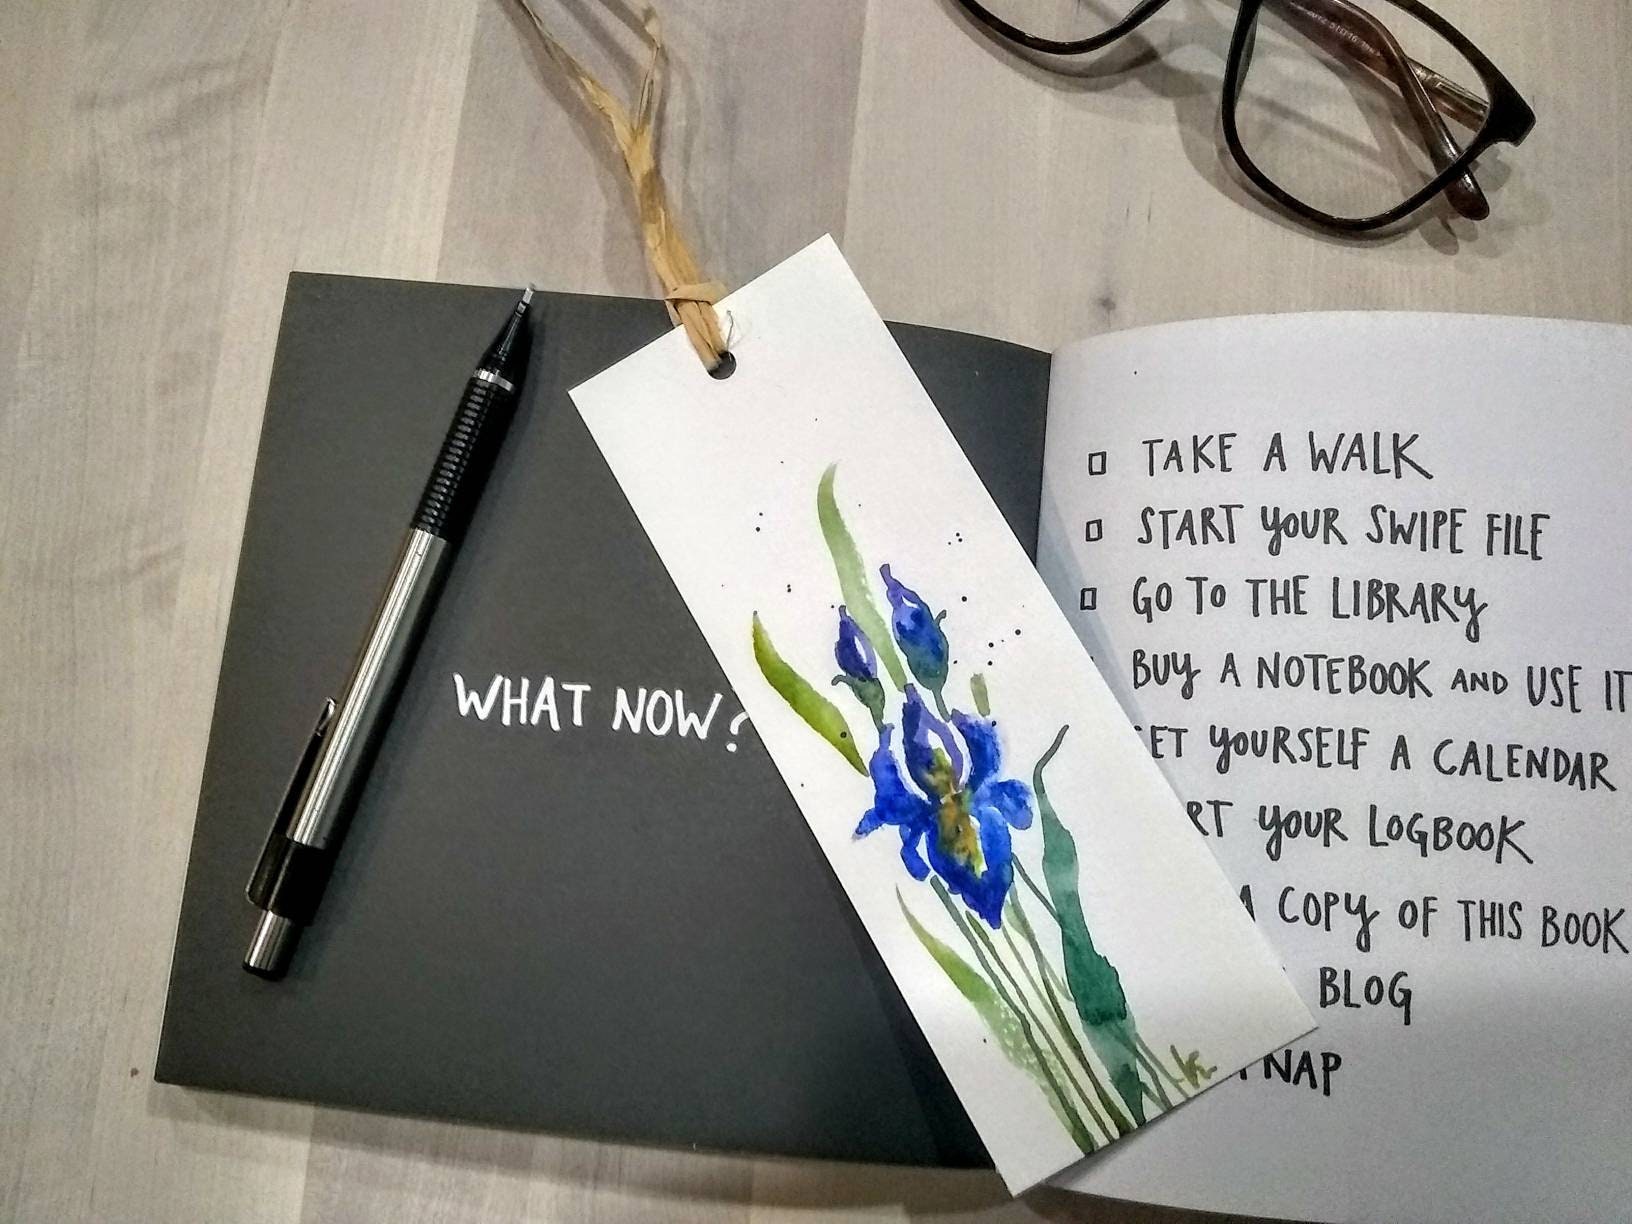 WHAT NOW?
TAKE A WALK
START YOUR SWIPE FILE
GO TO THE LIBRARY
BUY A NOTEBOOK AND USE IT
ET YOURSELF A CALENDAR
RT YOUR LOGBOOK
A COPY OF THIS BOOK
BLOG
NAP